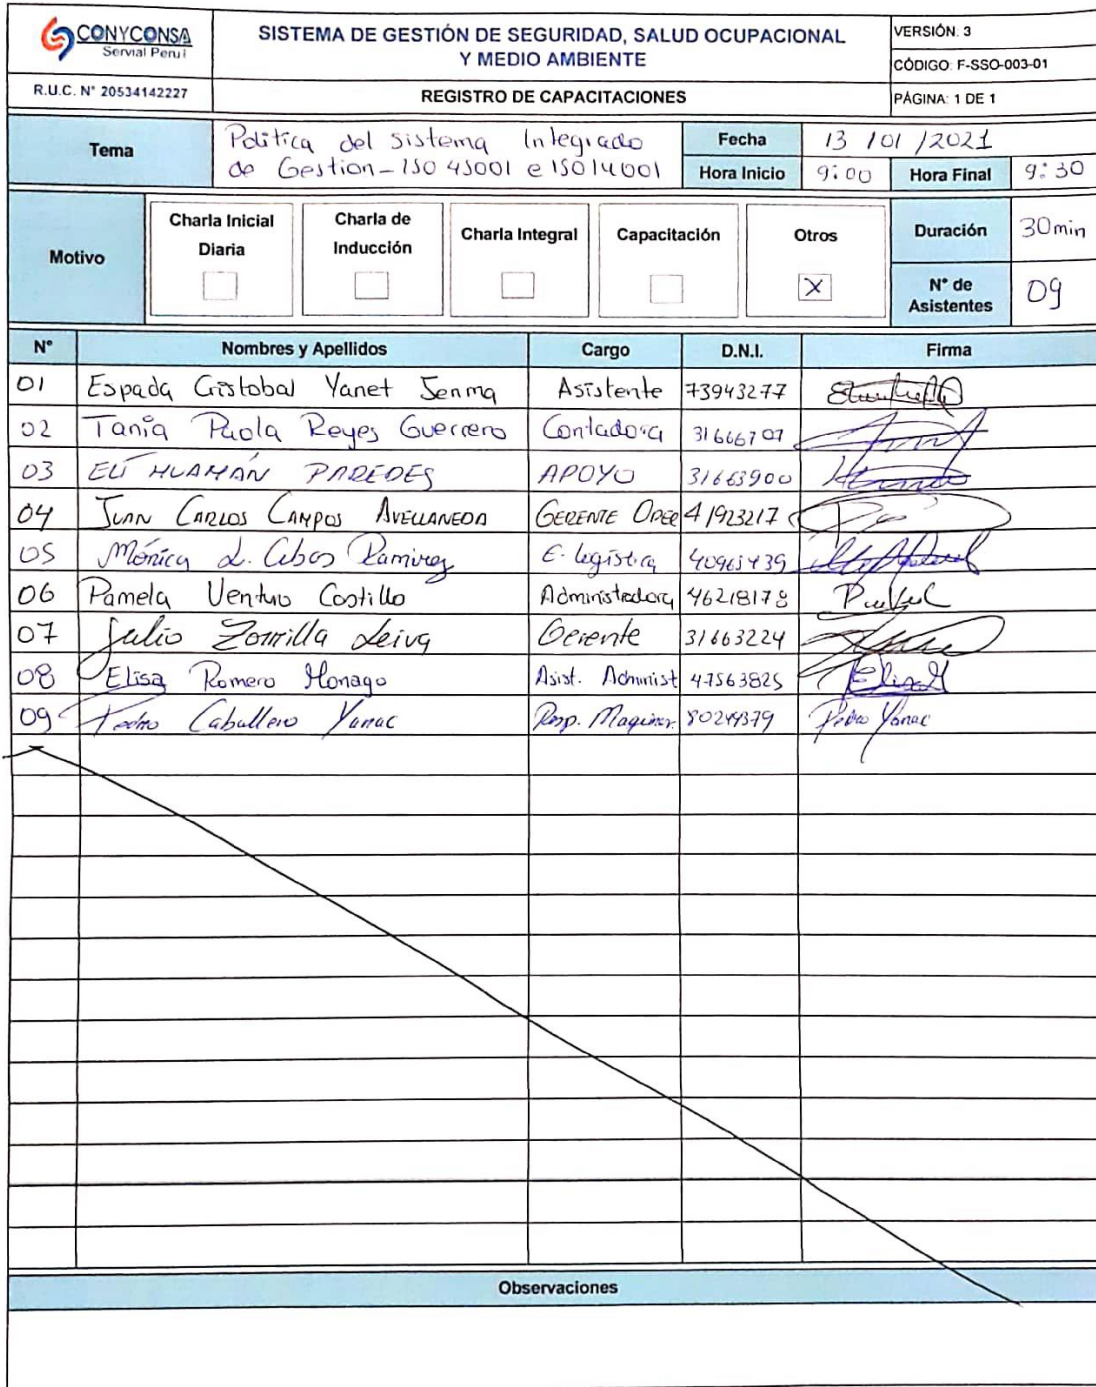 CONYCONSA
Servial Peru
R.U.C. N° 20534142227
SISTEMA DE GESTIÓN DE SEGURIDAD, SALUD OCUPACIONAL
Y MEDIO AMBIENTE
REGISTRO DE CAPACITACIONES
VERSIÓN: 3
CÓDIGO: F-SSO-003-01
PÁGINA: 1 DE 1
Tema
Política del sistema Integrado
de Gestion - ISO 45001 e ISO 14001
Fecha 13 / 01 / 2021
Hora Inicio 9:00 Hora Final 9:30
Motivo
Charla Inicial
Diaria
Charla de
Inducción
Charla Integral
Capacitación
Otros
X
Duración 30min
N° de
Asistentes 09
N° Nombres y Apellidos Cargo D.N.I. Firma
01 Espada Cristobal Yanet Jenma Asistente 73943277
02 Tania Paola Reyes Guerrero Contadora 31666707
03 ELÍ HUAMÁN PAREDES APOYO 31663900
04 JUAN CARLOS CAMPOS AVELLANEDA GERENTE OPER 41923217
05 Mónica L. Ramirez E. logística 40965439
06 Pamela Venturo Castillo Administradora 46218178
07 Julio Zorrilla Leiva Gerente 31663224
08 Elisa Romero Monago Asist. Administ 47563825
09 Pedro Caballero Yanac Resp. Maquinar. Pedro Yanac
Observaciones